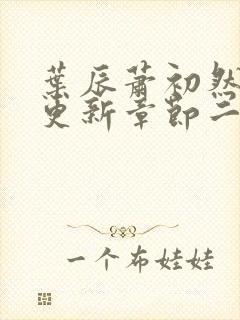 葉辰蕭初然
更新章節二
一个布娃娃